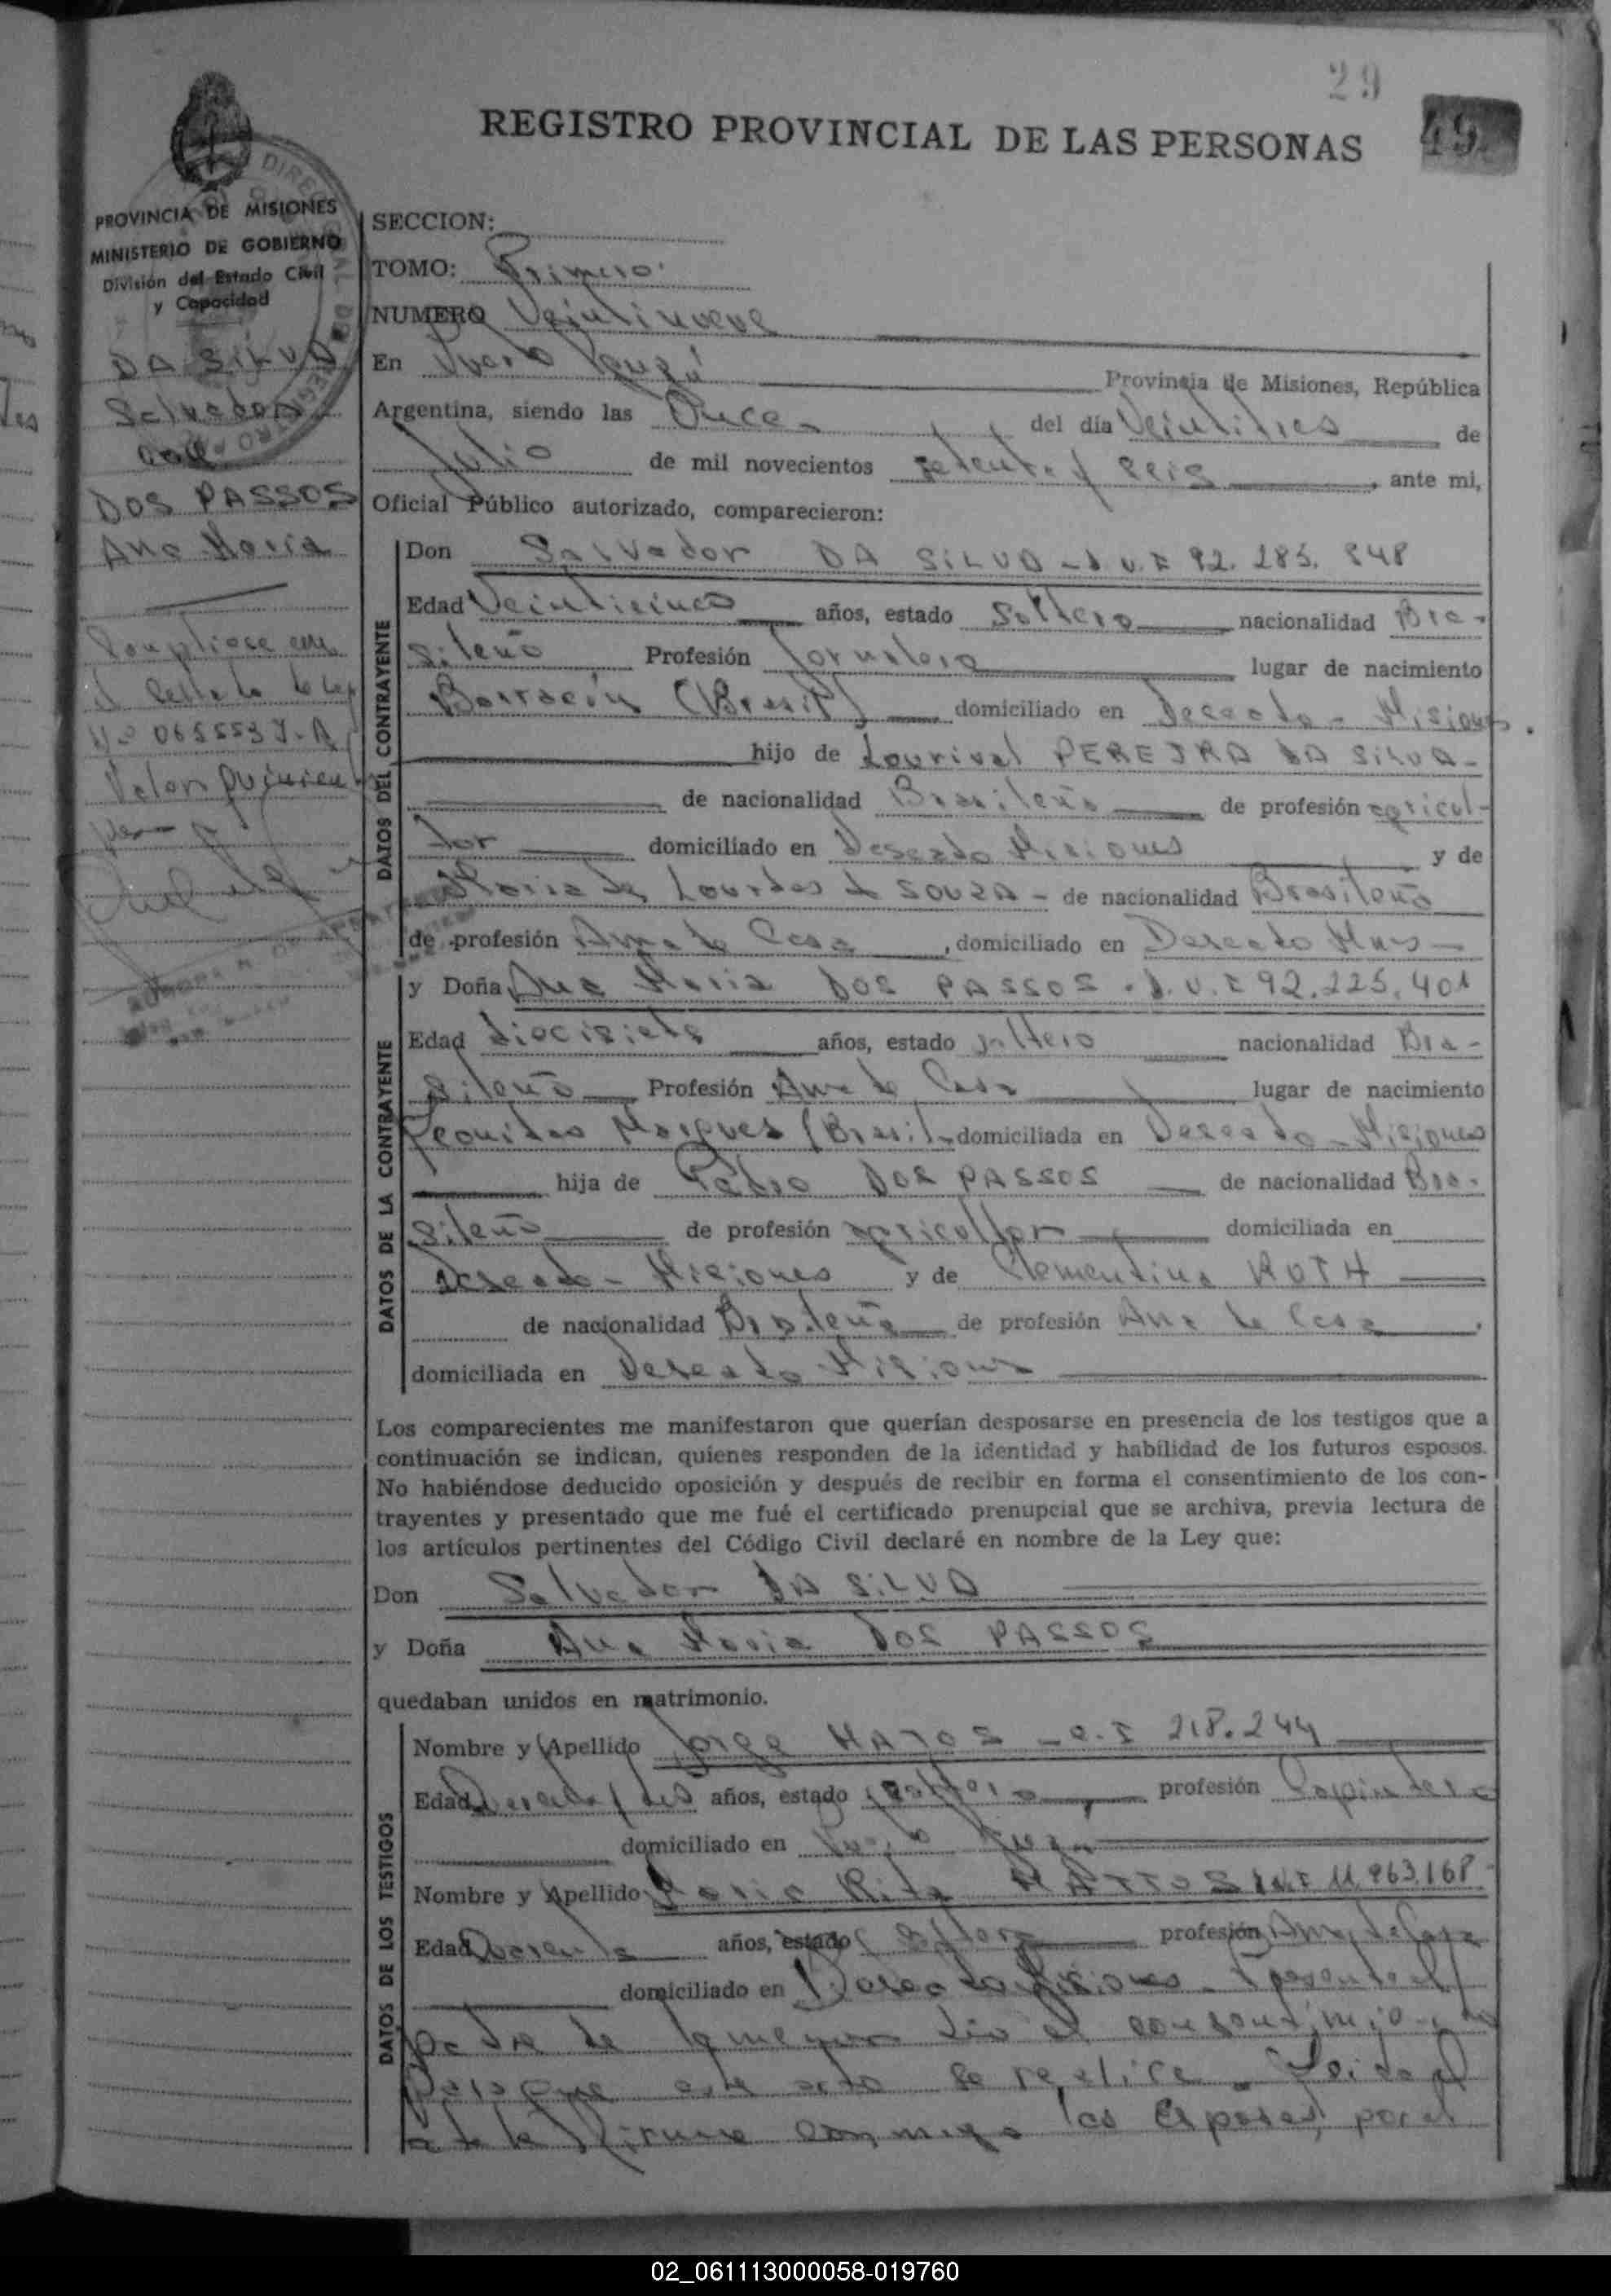 29
REGISTRO PROVINCIAL DE LAS PERSONAS
49
PROVINCIA DE MISIONES
MINISTERIO DE GOBIERNO
División del Estado Civil
y Capacidad
DA SILVA
Salvador
con
DOS PASSOS
Ana Maria
el
Nº 065553
Valor
SECCION:
TOMO: Primero
NUMERO Veintinueve
En Puerto Provincia de Misiones, República
Argentina, siendo las Once del día Veintitres de
Julio de mil novecientos setenta y seis, ante mi,
Oficial Público autorizado, comparecieron:
DATOS DEL CONTRAYENTE
Don Salvador DA SILVA - D.N.I 92.285.848
Edad Veinticinco años, estado Soltero nacionalidad Bra-
sileño Profesión Jornalero lugar de nacimiento
(Brasil) domiciliado en Deseado - Misiones
hijo de Lourival PEREIRA DA SILVA -
de nacionalidad Brasileño de profesión agricul-
tor domiciliado en Deseado Misiones y de
Maria de Lourdes de SOUZA - de nacionalidad Brasileña
de profesión Ama de Casa, domiciliado en Deseado Mnes -
DATOS DE LA CONTRAYENTE
y Doña Ana Maria DOS PASSOS - D.N.I 92.225.401
Edad diecisiete años, estado soltera nacionalidad Bra-
sileña Profesión Ama de Casa lugar de nacimiento
Marques (Brasil) domiciliada en Deseado - Misiones
hija de Pedro DOS PASSOS de nacionalidad Bra-
sileño de profesión agricultor domiciliada en
Deseado - Misiones y de Clementina ROTH
de nacionalidad Brasileña de profesión Ama de Casa,
domiciliada en Deseado Misiones
Los comparecientes me manifestaron que querían desposarse en presencia de los testigos que a
continuación se indican, quienes responden de la identidad y habilidad de los futuros esposos.
No habiéndose deducido oposición y después de recibir en forma el consentimiento de los con-
trayentes y presentado que me fué el certificado prenupcial que se archiva, previa lectura de
los artículos pertinentes del Código Civil declaré en nombre de la Ley que:
Don Salvador DA SILVA
y Doña Ana Maria DOS PASSOS
quedaban unidos en matrimonio.
DATOS DE LOS TESTIGOS
Nombre y Apellido Jorge MATOS - C.I 218.244
Edad años, estado soltero profesión
domiciliado en Puerto
Nombre y Apellido Maria Rita MATTOS D.N.I 11.963.168
Edad años, estado soltera profesión Ama de Casa
domiciliado en Deseado Misiones - Presente el
padre de la menor dio el consentimiento
para que este acto se realice - Leida el
acta la firman conmigo los esposos, por el
02_061113000058-019760